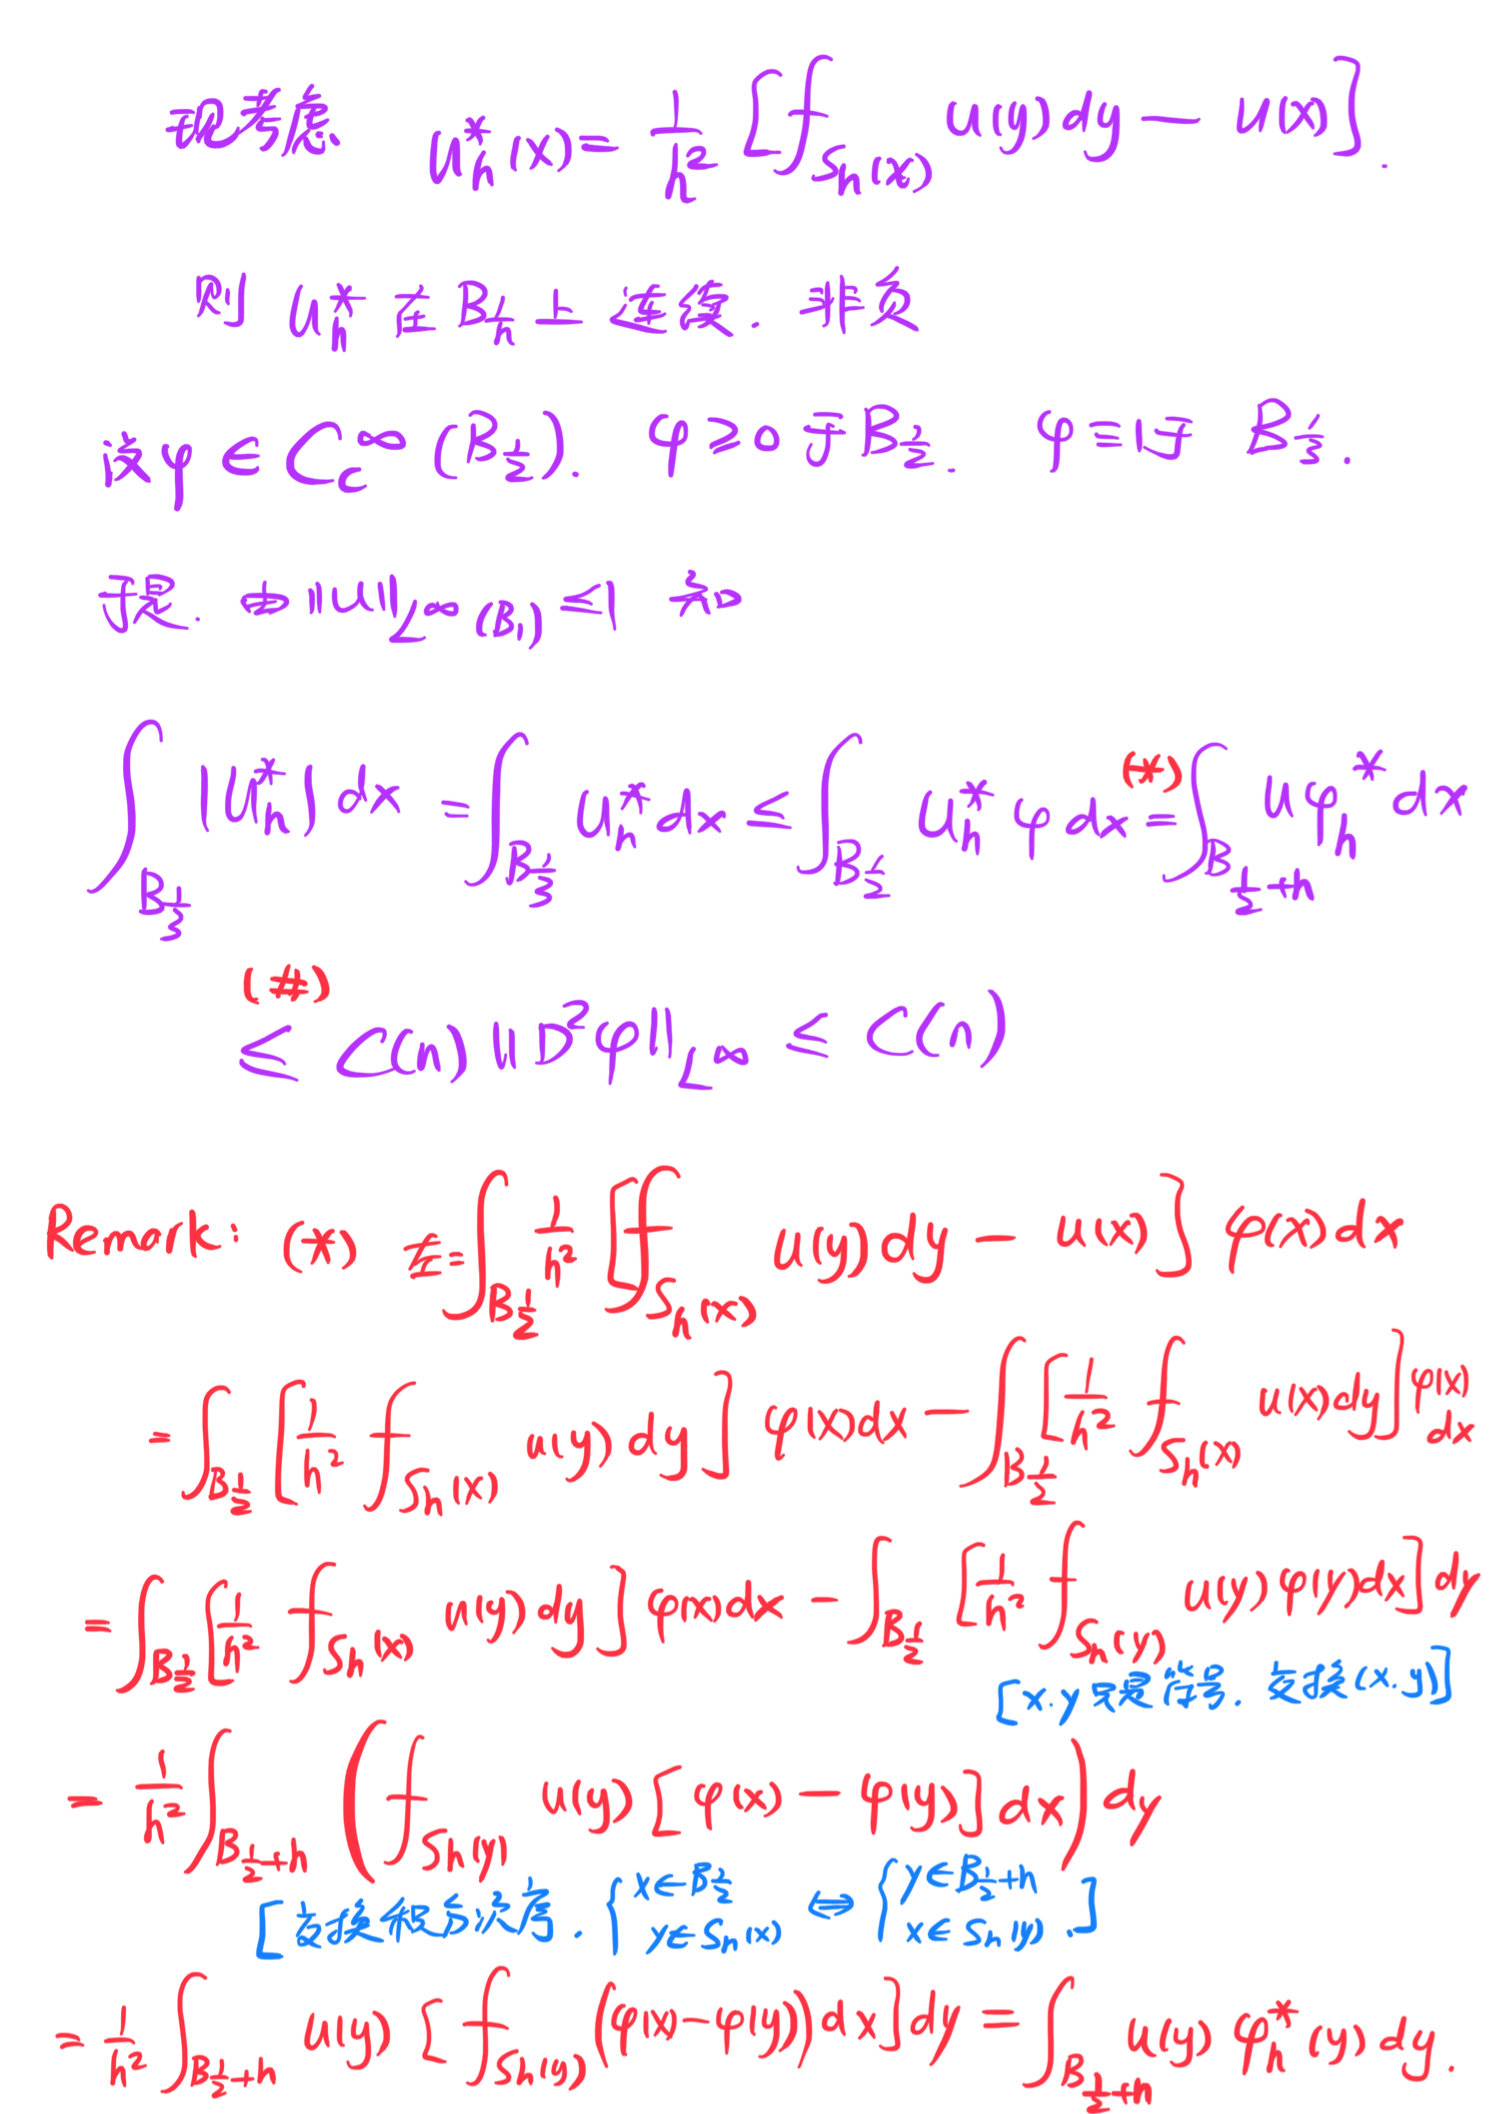 现考虑 u_h^*(x) = \frac{1}{h^2} [⨍_{S_h(x)} u(y) dy − u(x)].
则 u_h^* 在 B_{\frac{1}{h}} 上 连续. 非负
设 φ ∈ C_c^∞ (B_{\frac{1}{2}}). φ ≥ 0 于 B_{\frac{1}{2}}. φ ≡ 1 于 B_{\frac{1}{3}}.
于是. 由 ||u||_{L^∞(B_1)} ≤ 1 知
∫_{B_{\frac{1}{3}}} |u_h^*| dx = ∫_{B_{\frac{1}{3}}} u_h^* dx ≤ ∫_{B_{\frac{1}{2}}} u_h^* φ dx \overset{(*)}{=} ∫_{B_{\frac{1}{2}+h}} u φ_h^* dx
\overset{(#)}{≤} C(n) ||D^2 φ||_{L^∞} ≤ C(n)
Remark: (*) 左 = ∫_{B_{\frac{1}{2}}} \frac{1}{h^2} [⨍_{S_h(x)} u(y) dy − u(x)] φ(x) dx
= ∫_{B_{\frac{1}{2}}} [\frac{1}{h^2} ⨍_{S_h(x)} u(y) dy] φ(x) dx − ∫_{B_{\frac{1}{2}}} [\frac{1}{h^2} ⨍_{S_h(x)} u(x) dy] φ(x) dx
= ∫_{B_{\frac{1}{2}}} [\frac{1}{h^2} ⨍_{S_h(x)} u(y) dy] φ(x) dx − ∫_{B_{\frac{1}{2}}} [\frac{1}{h^2} ⨍_{S_h(y)} u(y) φ(y) dx] dy
[x.y 只是符号. 交换(x.y)]
= \frac{1}{h^2} ∫_{B_{\frac{1}{2}+h}} (⨍_{S_h(y)} u(y) [φ(x) − φ(y)] dx) dy
[交换积分次序. {x∈B_{\frac{1}{2}} y∈S_h(x) ⇔ {y∈B_{\frac{1}{2}+h} x∈S_h(y).]
= \frac{1}{h^2} ∫_{B_{\frac{1}{2}+h}} u(y) [⨍_{S_h(y)} (φ(x) − φ(y)) dx] dy = ∫_{B_{\frac{1}{2}+h}} u(y) φ_h^*(y) dy.